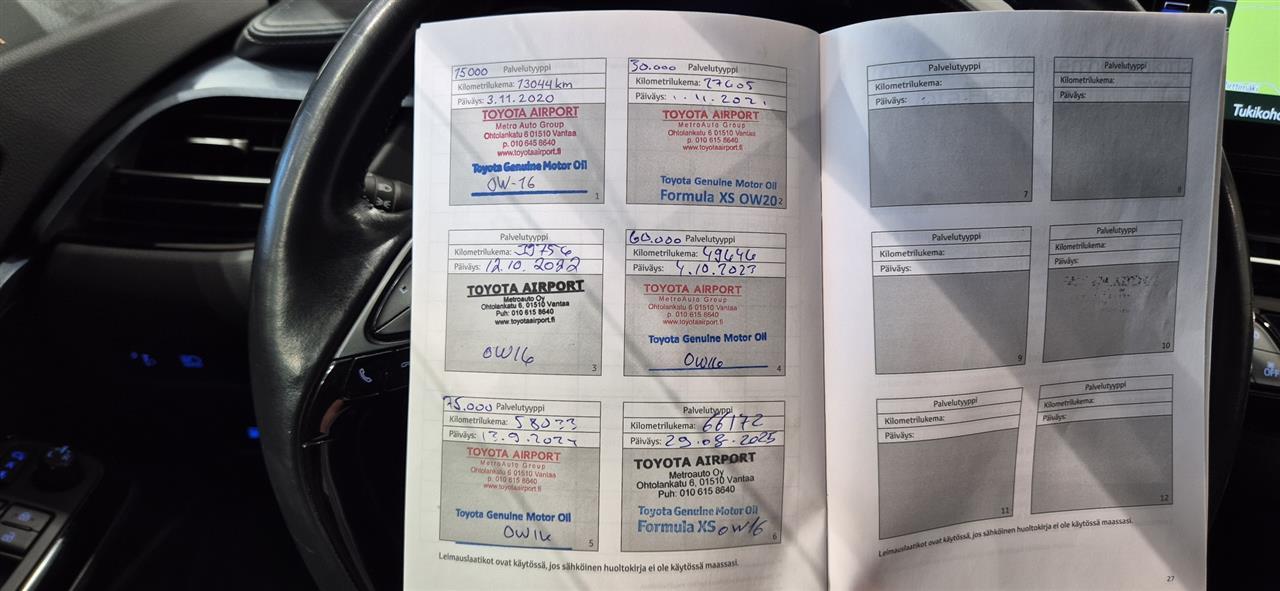 15000 Palvelutyyppi
Kilometrilukema: 13044 km
Päiväys: 3.11.2020
TOYOTA AIRPORT
Metro Auto Group
Ohtolankatu 6 01510 Vantaa
p. 010 615 8640
www.toyotaairport.fi
Toyota Genuine Motor Oil
0W-16
1
30.000 Palvelutyyppi
Kilometrilukema: 27605
Päiväys: 1.11.2021
TOYOTA AIRPORT
MetroAuto Group
Ohtolankatu 6 01510 Vantaa
p. 010 615 8640
www.toyotaairport.fi
Toyota Genuine Motor Oil
Formula XS 0W20
2
Palvelutyyppi
Kilometrilukema: 39756
Päiväys: 12.10.2022
TOYOTA AIRPORT
Metroauto Oy
Ohtolankatu 6, 01510 Vantaa
Puh: 010 615 8640
www.toyotaairport.fi
0W16
3
60.000 Palvelutyyppi
Kilometrilukema: 49646
Päiväys: 4.10.2023
TOYOTA AIRPORT
MetroAuto Group
Ohtolankatu 6 01510 Vantaa
p. 010 615 8640
www.toyotaairport.fi
Toyota Genuine Motor Oil
0W16
4
75.000 Palvelutyyppi
Kilometrilukema: 58033
Päiväys: 13.9.2024
TOYOTA AIRPORT
MetroAuto Group
Ohtolankatu 6 01510 Vantaa
p. 010 615 8640
www.toyotaairport.fi
Toyota Genuine Motor Oil
0W16
5
Palvelutyyppi
Kilometrilukema: 66172
Päiväys: 29.08.2025
TOYOTA AIRPORT
Metroauto Oy
Ohtolankatu 6, 01510 Vantaa
Puh: 010 615 8640
Toyota Genuine Motor Oil
Formula XS 0W16
6
Leimauslaatikot ovat käytössä, jos sähköinen huoltokirja ei ole käytössä maassasi.
Palvelutyyppi
Kilometrilukema:
Päiväys:
7
Palvelutyyppi
Kilometrilukema:
Päiväys:
8
Palvelutyyppi
Kilometrilukema:
Päiväys:
9
Palvelutyyppi
Kilometrilukema:
Päiväys:
10
Palvelutyyppi
Kilometrilukema:
Päiväys:
11
Palvelutyyppi
Kilometrilukema:
Päiväys:
12
Leimauslaatikot ovat käytössä, jos sähköinen huoltokirja ei ole käytössä maassasi.
27
OFF